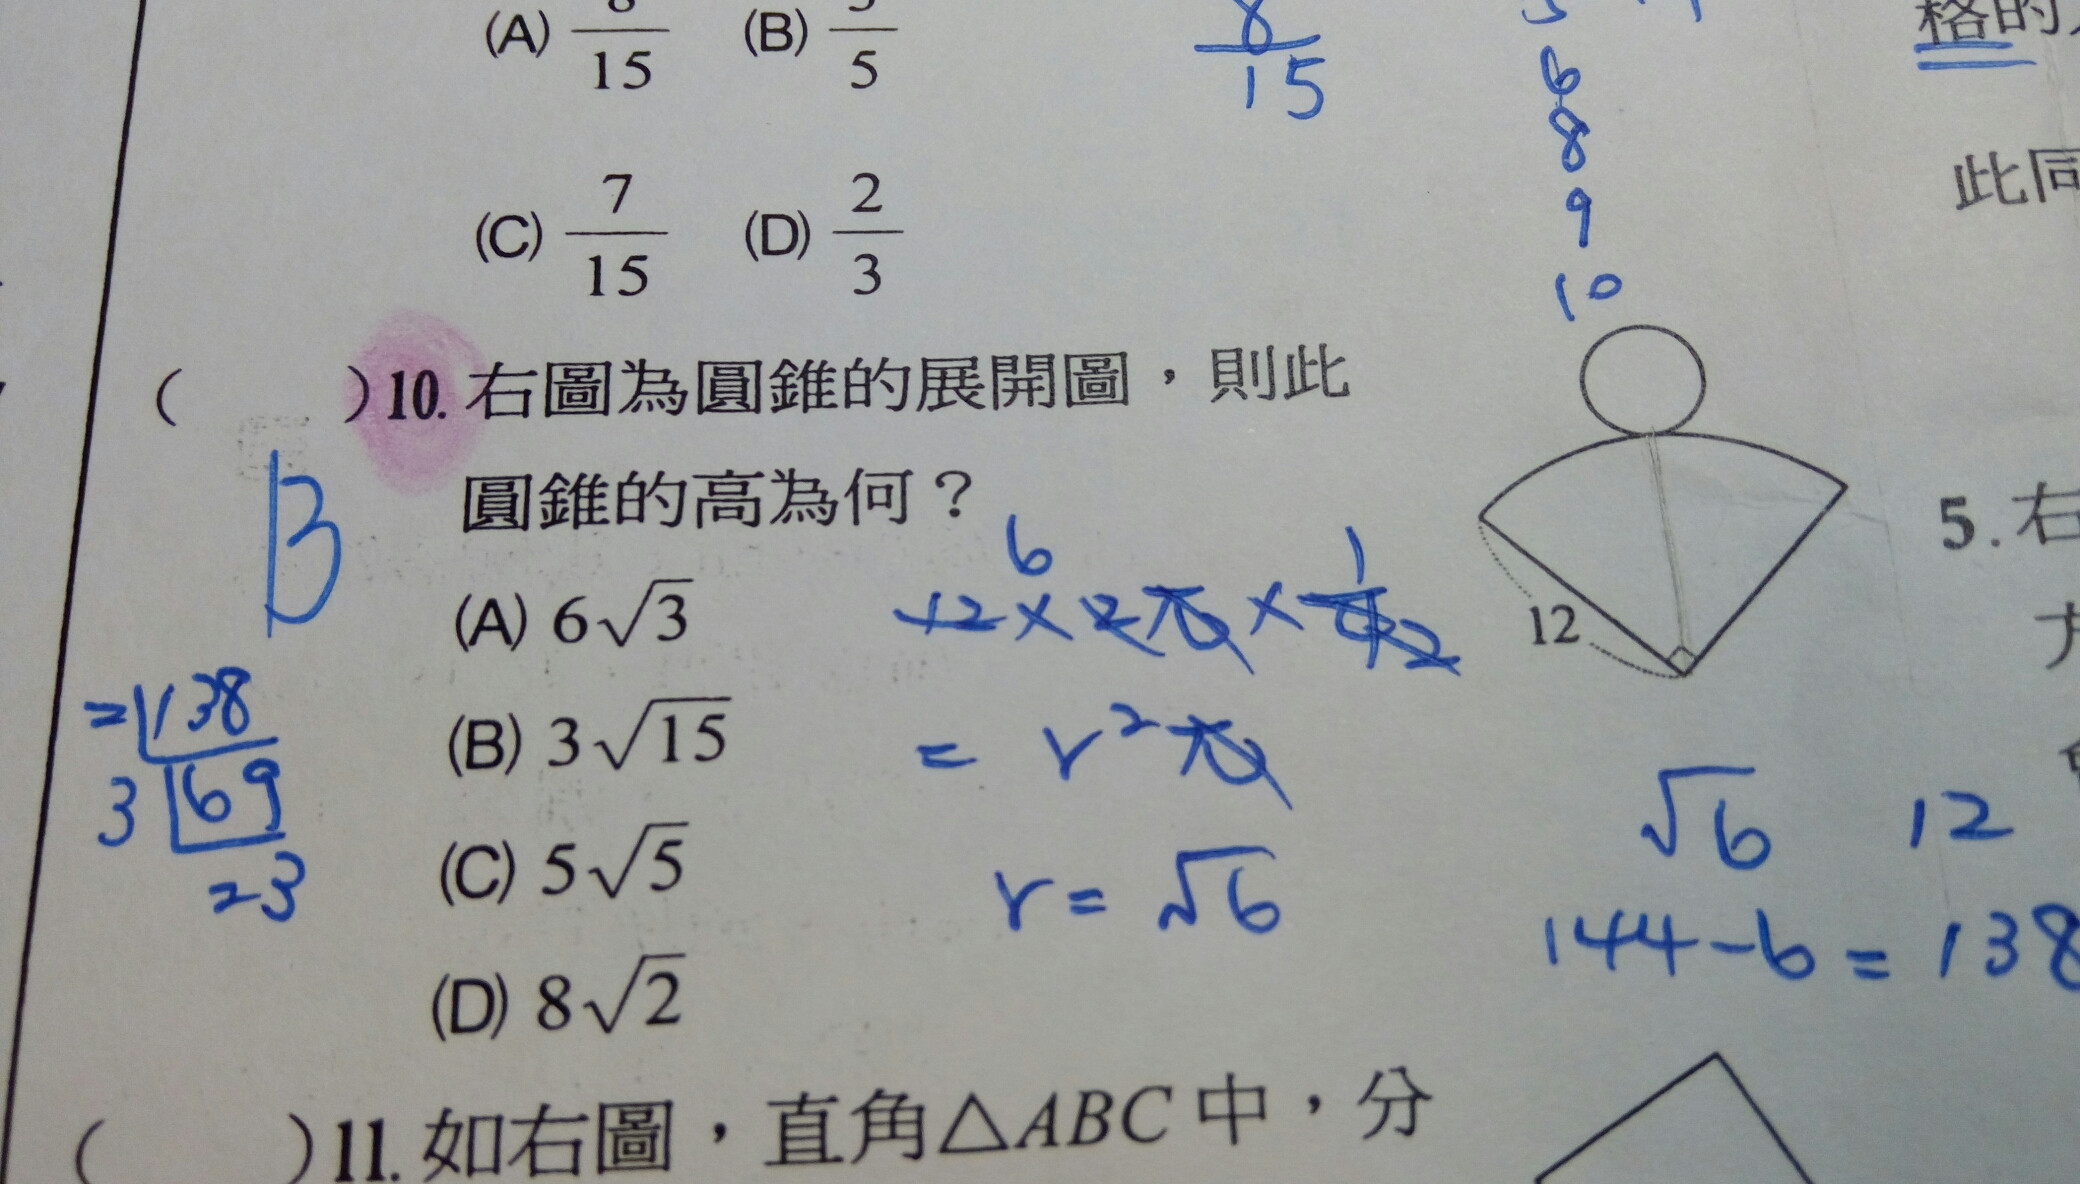 (A) 8/15 (B) 3/5
8/15
5
6
8
9
10
格的
此同
(C) 7/15 (D) 2/3
( )10. 右圖為圓錐的展開圖，則此
圓錐的高為何？
B
(A) 6√3
(B) 3√15
(C) 5√5
(D) 8√2
6
12×2π×
1
= r²π
r = √6
12
√6 12
144-6=138
=√138
3√69
=3
5. 右
( )11. 如右圖，直角△ABC 中，分